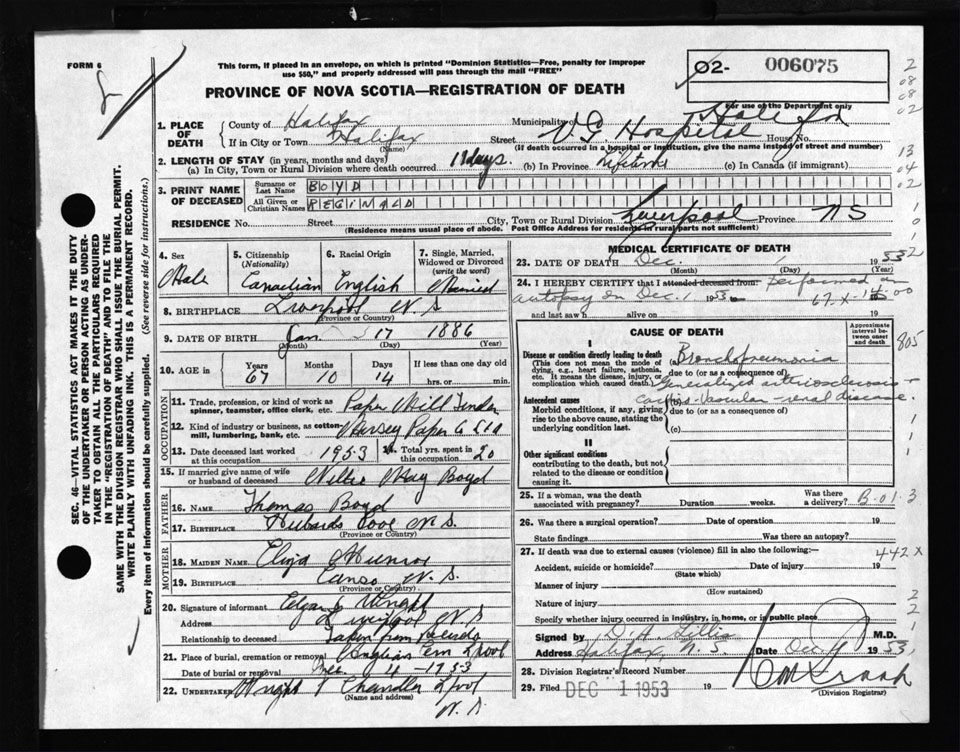 FORM 6
This form, if placed in an envelope, on which is printed "Dominion Statistics—Free, penalty for improper
use $50," and properly addressed will pass through the mail "FREE"
O2- 006075
PROVINCE OF NOVA SCOTIA—REGISTRATION OF DEATH
For use of the Department only
1. PLACE OF DEATH
County of Halifax
Municipality Halifax
If in City or Town Halifax (Name) Street V. G. Hospital House No.
(If death occurred in a hospital or institution, give the name instead of street and number)
2. LENGTH OF STAY (in years, months and days)
(a) In City, Town or Rural Division where death occurred 11 days. (b) In Province Lifetime (c) In Canada (if immigrant)
3. PRINT NAME OF DECEASED
Surname or Last Name BOYD
All Given or Christian Names REGINALD
RESIDENCE No. Street City, Town or Rural Division Liverpool Province N S
(Residence means usual place of abode. Post Office Address for residents in rural parts not sufficient)
4. Sex Male
5. Citizenship (Nationality) Canadian
6. Racial Origin English
7. Single, Married, Widowed or Divorced (write the word) Married
8. BIRTHPLACE Liverpool N. S
(Province or Country)
9. DATE OF BIRTH Jan. 17 1886
(Month) (Day) (Year)
10. AGE in Years 67 Months 10 Days 14 If less than one day old hrs. or min.
OCCUPATION
11. Trade, profession, or kind of work as spinner, teamster, office clerk, etc. Paper Mill Tender
12. Kind of industry or business, as cotton mill, lumbering, bank, etc. Mersey Paper Co Ltd
13. Date deceased last worked at this occupation 1953
14. Total yrs. spent in this occupation 20
15. If married give name of wife or husband of deceased May Boyd
FATHER
16. NAME Thomas Boyd
17. BIRTHPLACE Hubbards Cove N S.
(Province or Country)
MOTHER
18. MAIDEN NAME Eliza Munroe
19. BIRTHPLACE Canso N. S.
(Province or Country)
20. Signature of informant Edgar Wright
Address Liverpool N. S
Relationship to deceased Taken from Records
21. Place of burial, cremation or removal Anglican Cem Lpool
Date of burial or removal Dec. 4 - 1953
22. Undertaker Wright & Chandler Lpool
(Name and address)
N. S
MEDICAL CERTIFICATE OF DEATH
23. DATE OF DEATH Dec. 1 1953
(Month) (Day) (Year)
24. I HEREBY CERTIFY that I attended deceased from: Performed an
autopsy on Dec. 1 1953 to 19
and last saw h alive on
CAUSE OF DEATH
Approximate interval between onset and death
I
Disease or condition directly leading to death
(This does not mean the mode of dying, e.g., heart failure, asthenia, etc. It means the disease, injury, or complication which caused death.)
(a) Bronchopneumonia
due to (or as a consequence of)
Antecedent causes
Morbid conditions, if any, giving rise to the above cause, stating the underlying condition last.
(b) Generalized arteriosclerosis -
cardio-vascular-renal disease.
due to (or as a consequence of)
(c)
II
Other significant conditions
contributing to the death, but not related to the disease or condition causing it.
25. If a woman, was the death associated with pregnancy? Duration weeks. Was there a delivery?
26. Was there a surgical operation? Date of operation 19
State findings Was there an autopsy?
27. If death was due to external causes (violence) fill in also the following:
Accident, suicide or homicide? (State which) Date of injury 19
Manner of injury (How sustained)
Nature of injury
Specify whether injury occurred in industry, in home, or in public place
Signed by D. H. Gillis M.D.
Address Halifax, N. S. Date Dec. 1953
28. Division Registrar's Record Number
29. Filed DEC 1 1953 19
(Division Registrar)
805
B-01-3
442x
SEC. 46—VITAL STATISTICS ACT MAKES IT THE DUTY
OF THE UNDERTAKER OR PERSON ACTING AS UNDER-
TAKER TO OBTAIN ALL THE PARTICULARS REQUIRED
IN THE "REGISTRATION OF DEATH" AND TO FILE THE
SAME WITH THE DIVISION REGISTRAR WHO SHALL ISSUE THE BURIAL PERMIT.
WRITE PLAINLY WITH UNFADING INK. THIS IS A PERMANENT RECORD.
Every item of information should be carefully supplied. (See reverse side for instructions.)